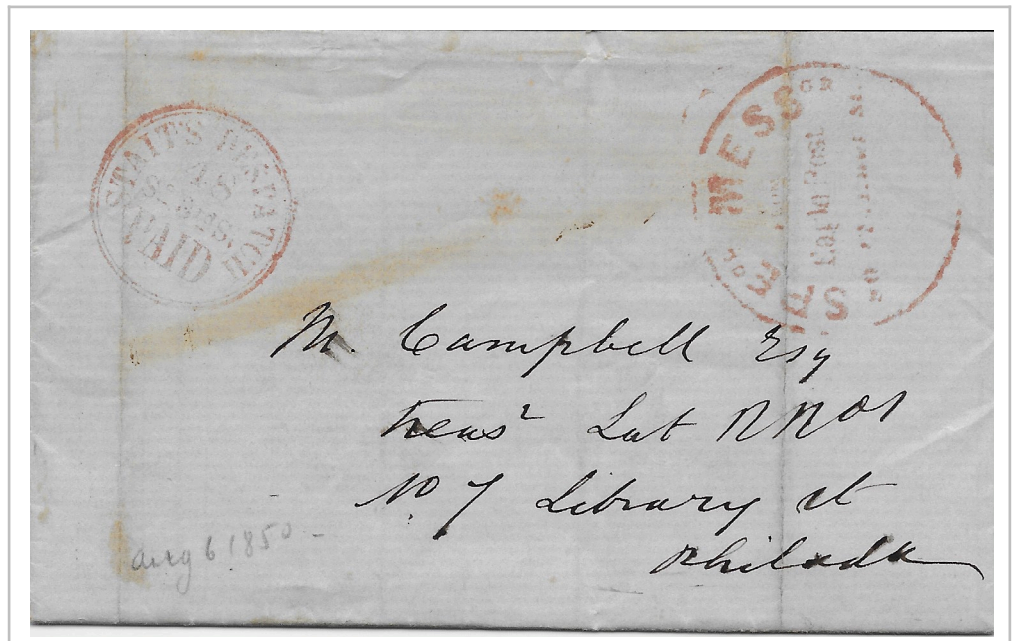 STAIT'S DESPATCH
48
So. 3rd St.
PAID
MESSGR
Eagle Post
M. Campbell Esq
Treasr Lat R R Of
No 7 Library st
Philada
Aug 6 1850